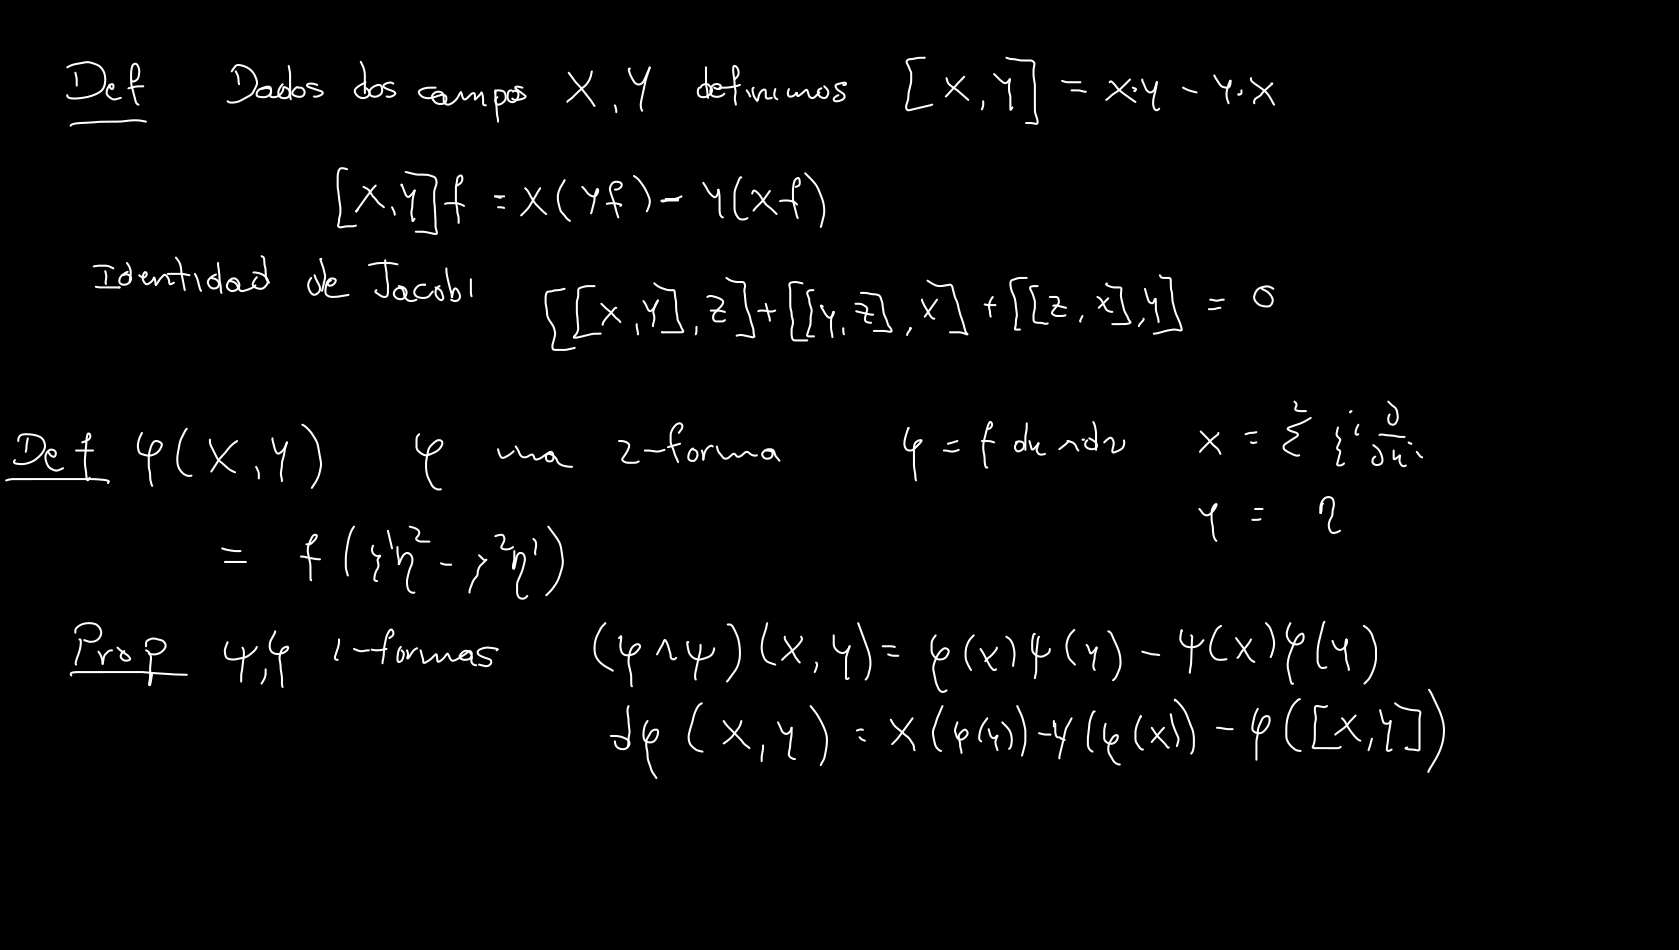 Def Dados dos campos X, Y definimos [X, Y] = X·Y - Y·X
[X, Y]f = X(Yf) - Y(Xf)
Identidad de Jacobi [[X, Y], Z] + [[Y, Z], X] + [[Z, X], Y] = 0
Def φ(X, Y) φ una 2-forma φ = f du ∧ dv X = Σ² ξⁱ ∂/∂uⁱ
Y = η
= f(ξ¹η² - ξ²η¹)
Prop ψ, φ 1-formas (φ ∧ ψ)(X, Y) = φ(X)ψ(Y) - ψ(X)φ(Y)
dφ(X, Y) = X(φ(Y)) - Y(φ(X)) - φ([X, Y])